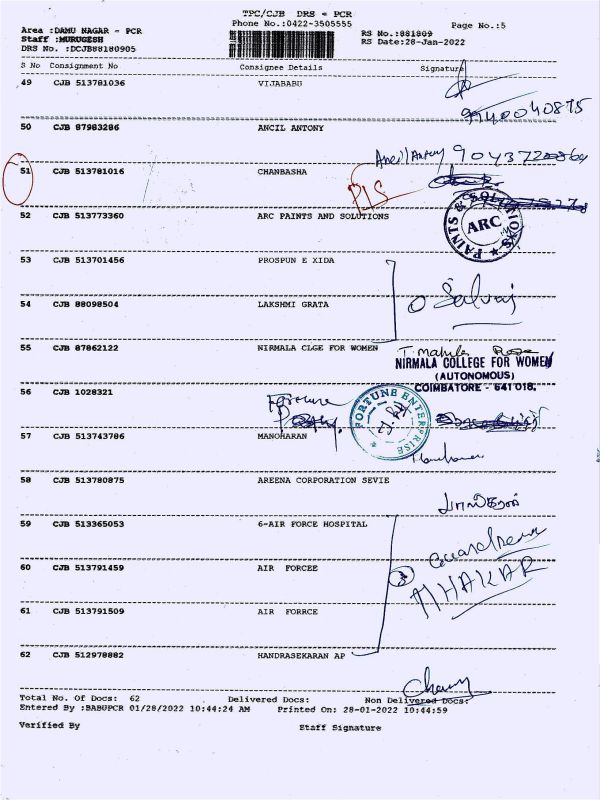 TPC/CJB DRS - PCR
Phone No.:0422-3505555
Page No.:5
Area :DAMU NAGAR - PCR
Staff :MURUGESH
DRS No. :DCJB88180905
RS No.:881809
RS Date:28-Jan-2022
S No Consignment No Consignee Details Signature
49 CJB 513781036 VIJABABU
9940040875
50 CJB 87983286 ANCIL ANTONY
Ancil Antony
51 CJB 513781016 CHANBASHA
52 CJB 513773360 ARC PAINTS AND SOLUTIONS
PAINTS & SOLUTIONS
ARC
53 CJB 513701456 PROSPUN E XIDA
54 CJB 88098504 LAKSHMI GRATA
Selvaj
55 CJB 87862122 NIRMALA CLGE FOR WOMEN
NIRMALA COLLEGE FOR WOMEN
(AUTONOMOUS)
COIMBATORE - 641 018.
56 CJB 1028321
Fortune
FORTUNE ENTERPRISE
57 CJB 513743786 MANOHARAN
58 CJB 513780875 AREENA CORPORATION SEVIE
59 CJB 513365053 6-AIR FORCE HOSPITAL
60 CJB 513791459 AIR FORCEE
61 CJB 513791509 AIR FORRCE
62 CJB 512978882 HANDRASEKARAN AP
Total No. Of Docs: 62 Delivered Docs: Non Delivered Docs:
Entered By :BABUPCR 01/28/2022 10:44:24 AM Printed On: 28-01-2022 10:44:59
Verified By Staff Signature